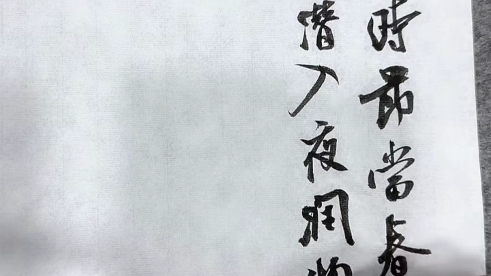 時節當春
潛入夜潤物